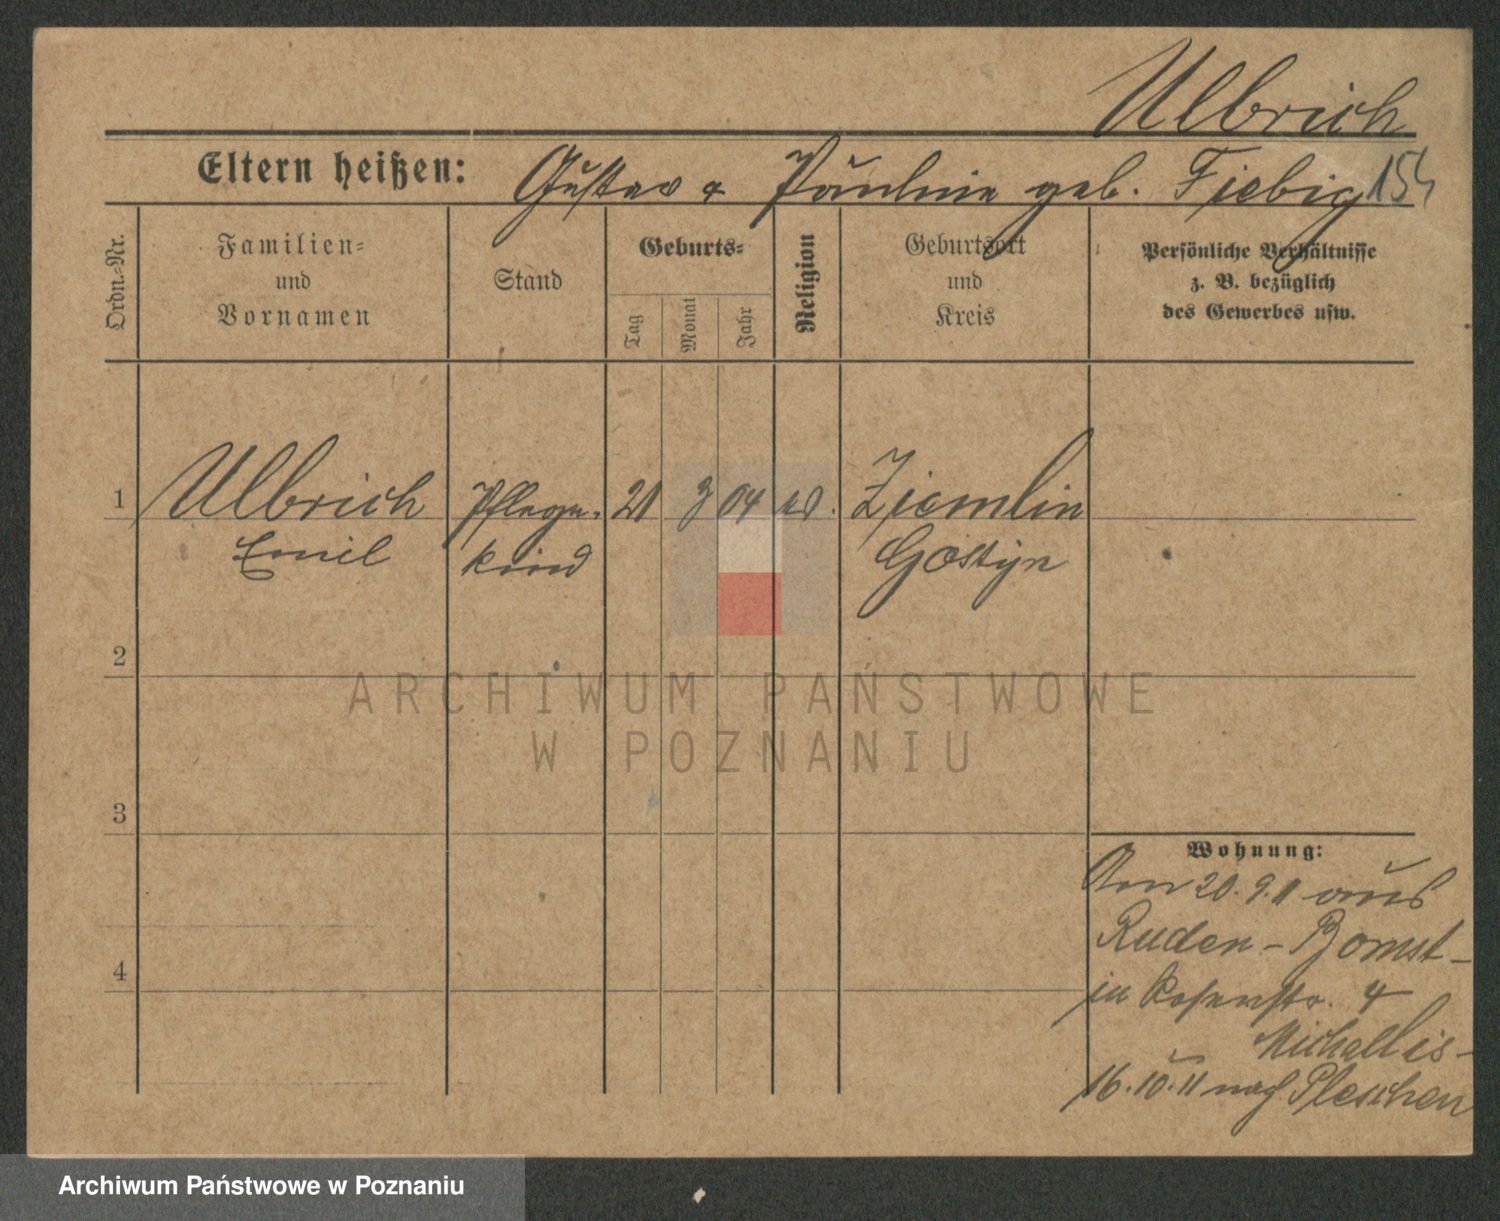 Ulbrich
Eltern heißen: Gustav & Pauline geb. Fiebig 154
Ordn.-Nr.
Familien-
und
Vornamen
Stand
Geburts-
Tag
Monat
Jahr
Religion
Geburtsort
und
Kreis
Persönliche Verhältnisse
z. B. bezüglich
des Gewerbes usw.
1 Ulbrich Pflege- 21 3 04 Ziemlin
Emil kind Gostyn
2
3
4
Wohnung:
Am 20.9.11 aus
Ruden - Bomst -
in Posenstr. 4
Michallis -
16.10.11 nach Pleschen
ARCHIWUM PAŃSTWOWE
W POZNANIU
Archiwum Państwowe w Poznaniu